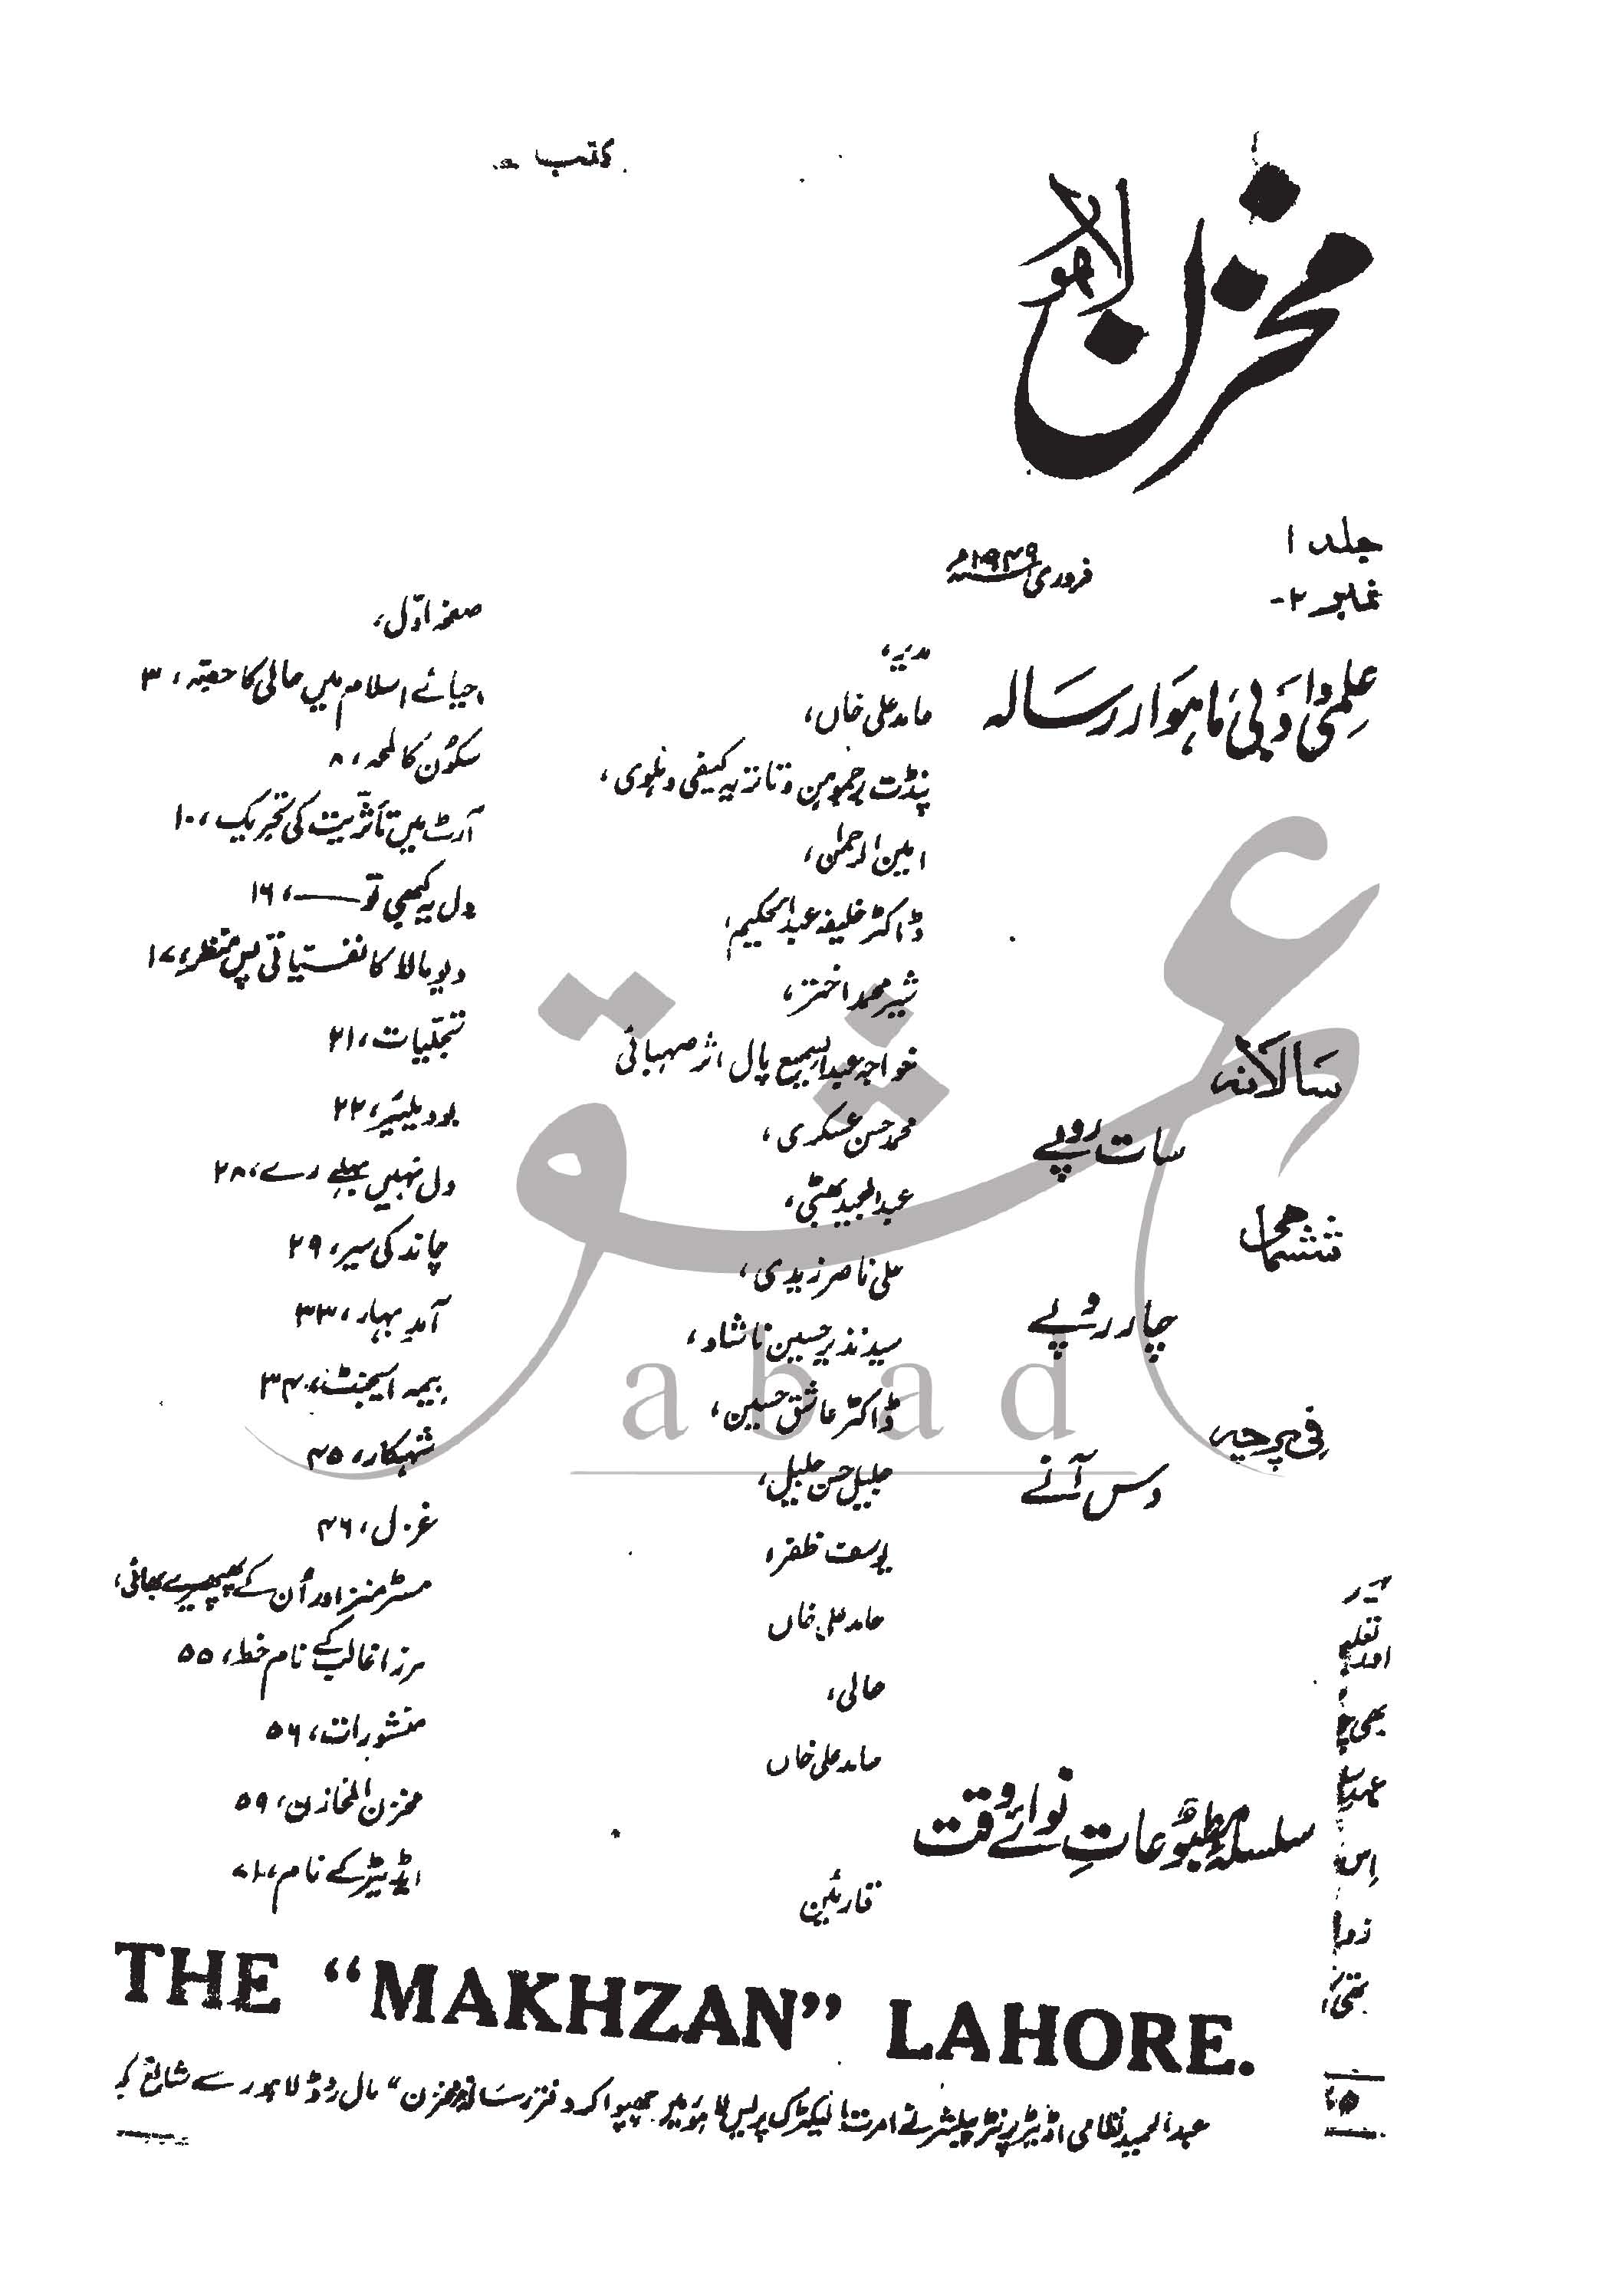 کتب
مخزن
لاہور
جلد ۱
نمبر ۲-
فروری ۱۹۴۹ء
علمی و ادبی ماہوار رسالہ
سالانہ
سات روپے
ششماہی
چار روپے
فی پرچہ
دس آنے
سلسلہ مطبوعاتِ نوائے وقت
مدیر،
حامد علی خاں،
پنڈت برجموہن دتاتریہ کیفی دہلوی،
امین الرحمٰن،
ڈاکٹر خلیفہ عبدالحکیم،
شیر محمد اختر،
خواجہ عبدالسمیع پال اثر صہبائی
محمد حسن عسکری،
عبدالمجید بھٹی،
علی ناصر زیدی،
سید نذیر حسین ناشاد،
ڈاکٹر عاشق حسین،
جلیل حسن جلیل،
یوسف ظفر،
حامد علی خاں
حالی،
حامد علی خاں
قارئین
صفحہ اوّل،
احیائے اسلام میں حالی کا حصّہ، ۳
سکون کا لمحہ، ۸
آرٹ میں تأثریت کی تحریک، ۱۰
دل یہ کبھی تو ——، ۱۶
دیومالا کا نفسیاتی پس منظر، ۱۷
تجلّیات، ۲۱
بودیلیئر، ۲۲
دل نہیں بہلے رے، ۲۸
چاند کی سیر، ۲۹
آمدِ بہار، ۳۳
بیمہ ایجنٹ، ۳۴
شہکار، ۴۵
غزل، ۴۶
مسٹر منز اور اُن کے پھپھیرے بھائی،
مرزا غالب کے نام خط، ۵۵
منشورات، ۵۶
مخزن المخازن، ۵۹
ایڈیٹر کے نام، ۷۱
اور
بھی
اِس
THE "MAKHZAN" LAHORE.
عبدالحمید نظامی اڈیٹر پرنٹر پبلشر نے امرت الیکٹرک پریس لاہور میں چھپوا کر دفتر رسالہ "مخزن" مال روڈ لاہور سے شائع کیا
عشق
abad